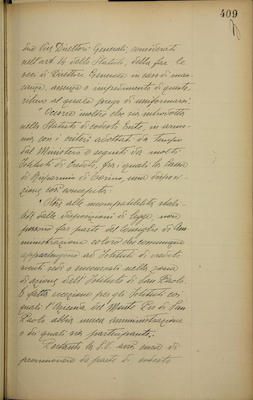 409
dei Vice Direttori Generali, considerati
nell'art. 14 dello Statuto, della fun
di Direttore Generale in caso di man
canza, assenza o impedimento di questo,
al quale prego di uniformarsi.
"Occorre inoltre che sia introdotta
nello Statuto di codesto Ente, in armo
nia con i criteri adottati da tempo
dal Ministero e seguiti da molti
Istituti di Credito, fra i quali la Cassa
di Risparmio di Torino, una disposi
zione così concepita:
"Oltre alle incompatibilità stabi
lite dalle disposizioni di legge non
possono far parte del Consiglio di Am
ministrazione coloro che comunque
appartengono ad Istituti di credito
aventi sede o succursali nella zona
di azione dell'Istituto di San Paolo.
È fatta eccezione per gli Istituti coi
quali l'Azienda del Monte Pio di San
Paolo abbia unica amministrazione
o dei quali sia partecipante.
Pertanto la S.V. avrà cura di
promuovere da parte di codesto